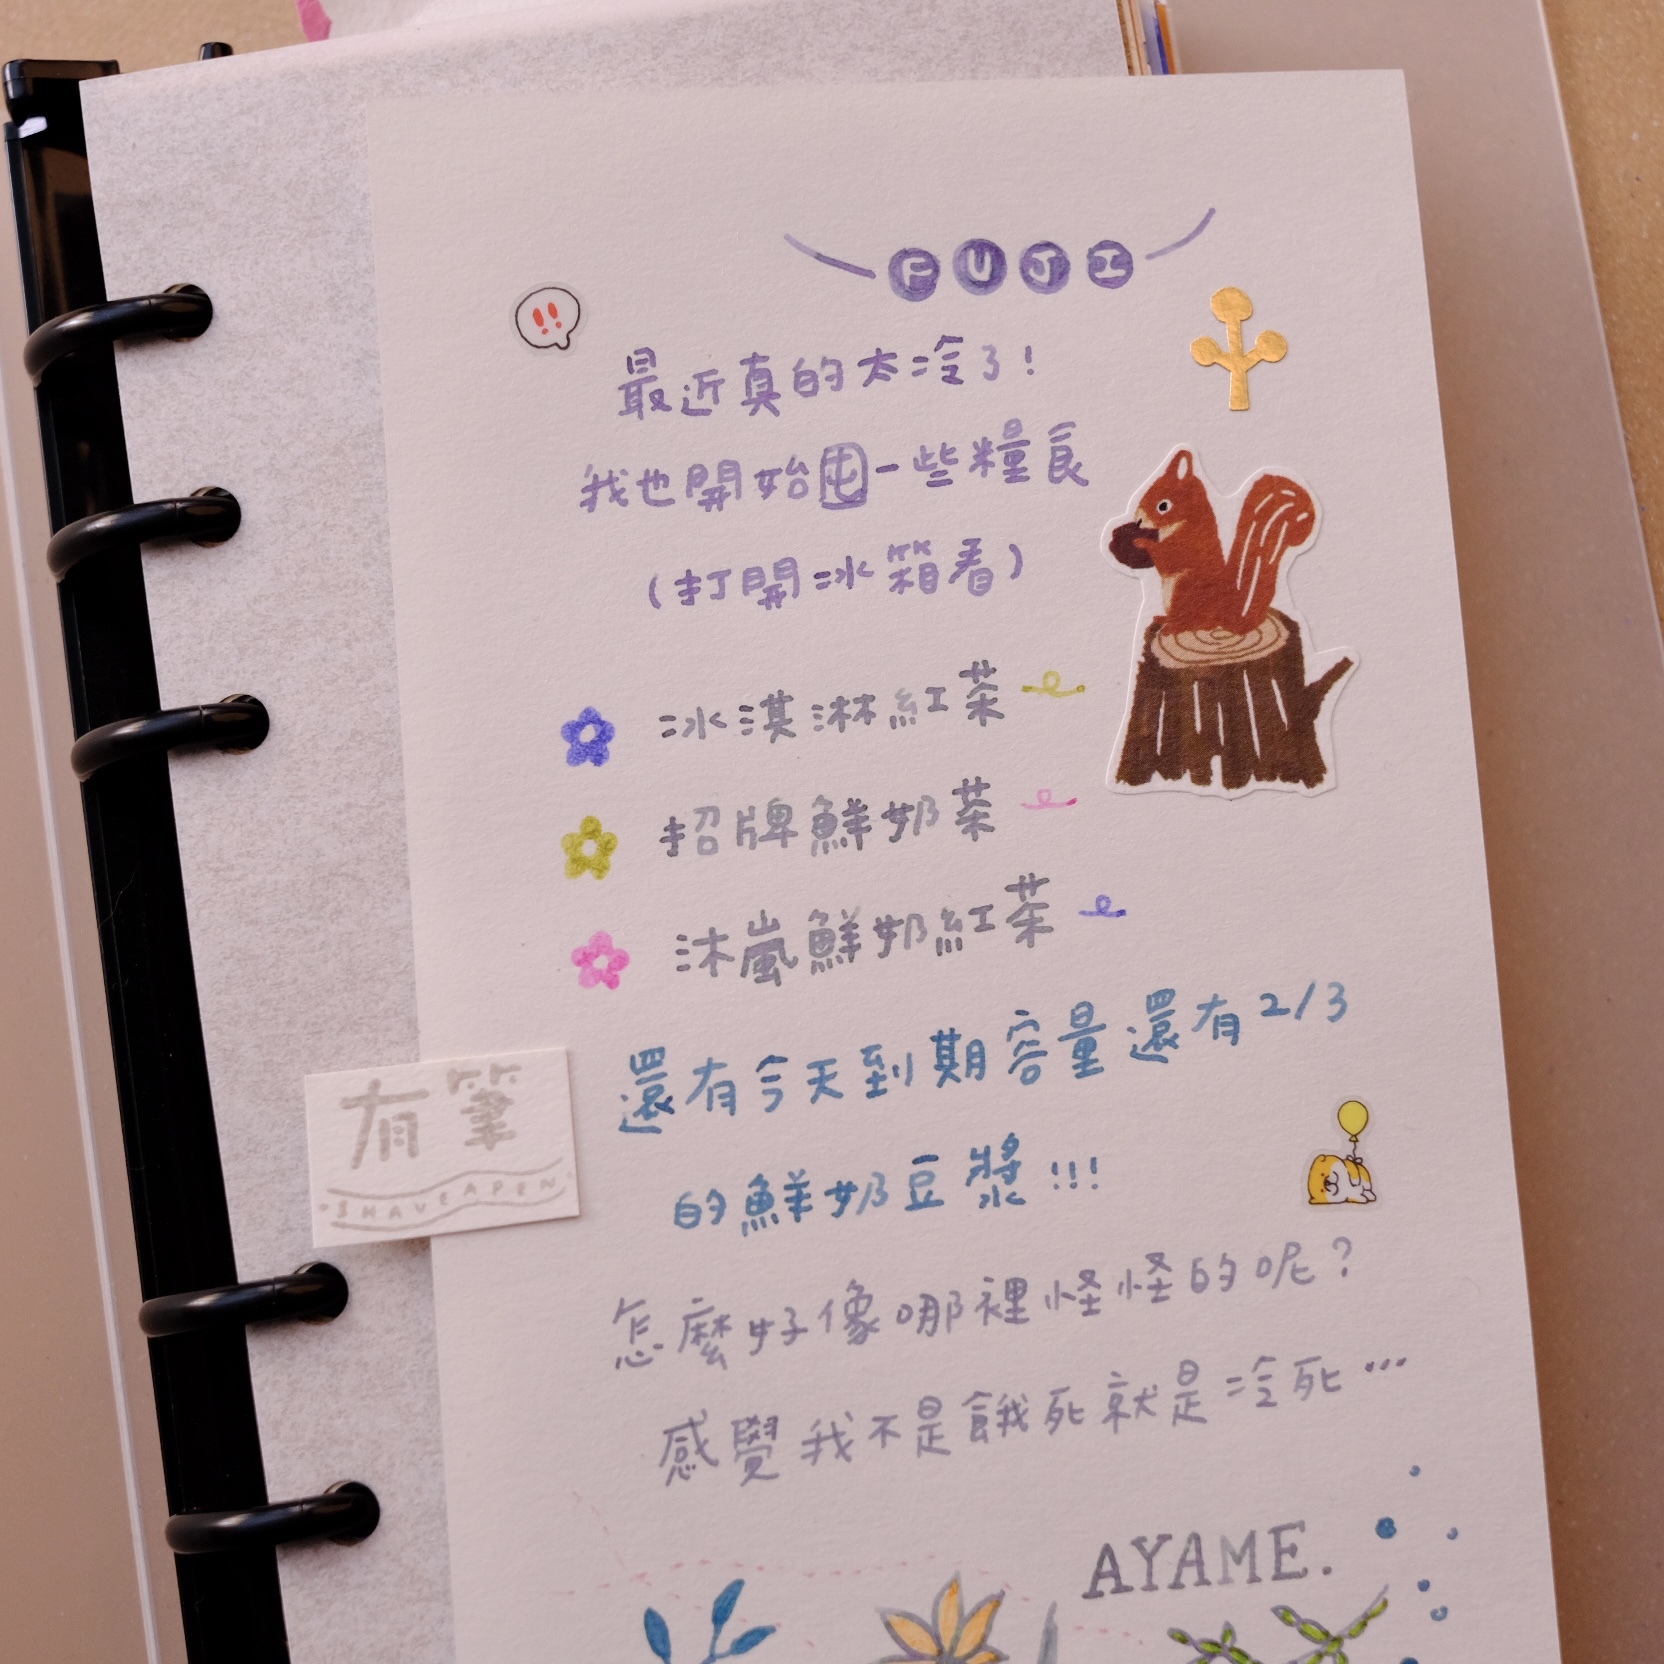 FUJI
!!
最近真的太冷了!
我也開始囤一些糧食
(打開冰箱看)
冰淇淋紅茶
招牌鮮奶茶
沐嵐鮮奶紅茶
還有今天到期容量還有2/3
的鮮奶豆漿!!!
有筆
I HAVE A PEN
怎麼好像哪裡怪怪的呢?
感覺我不是餓死就是冷死…
AYAME.